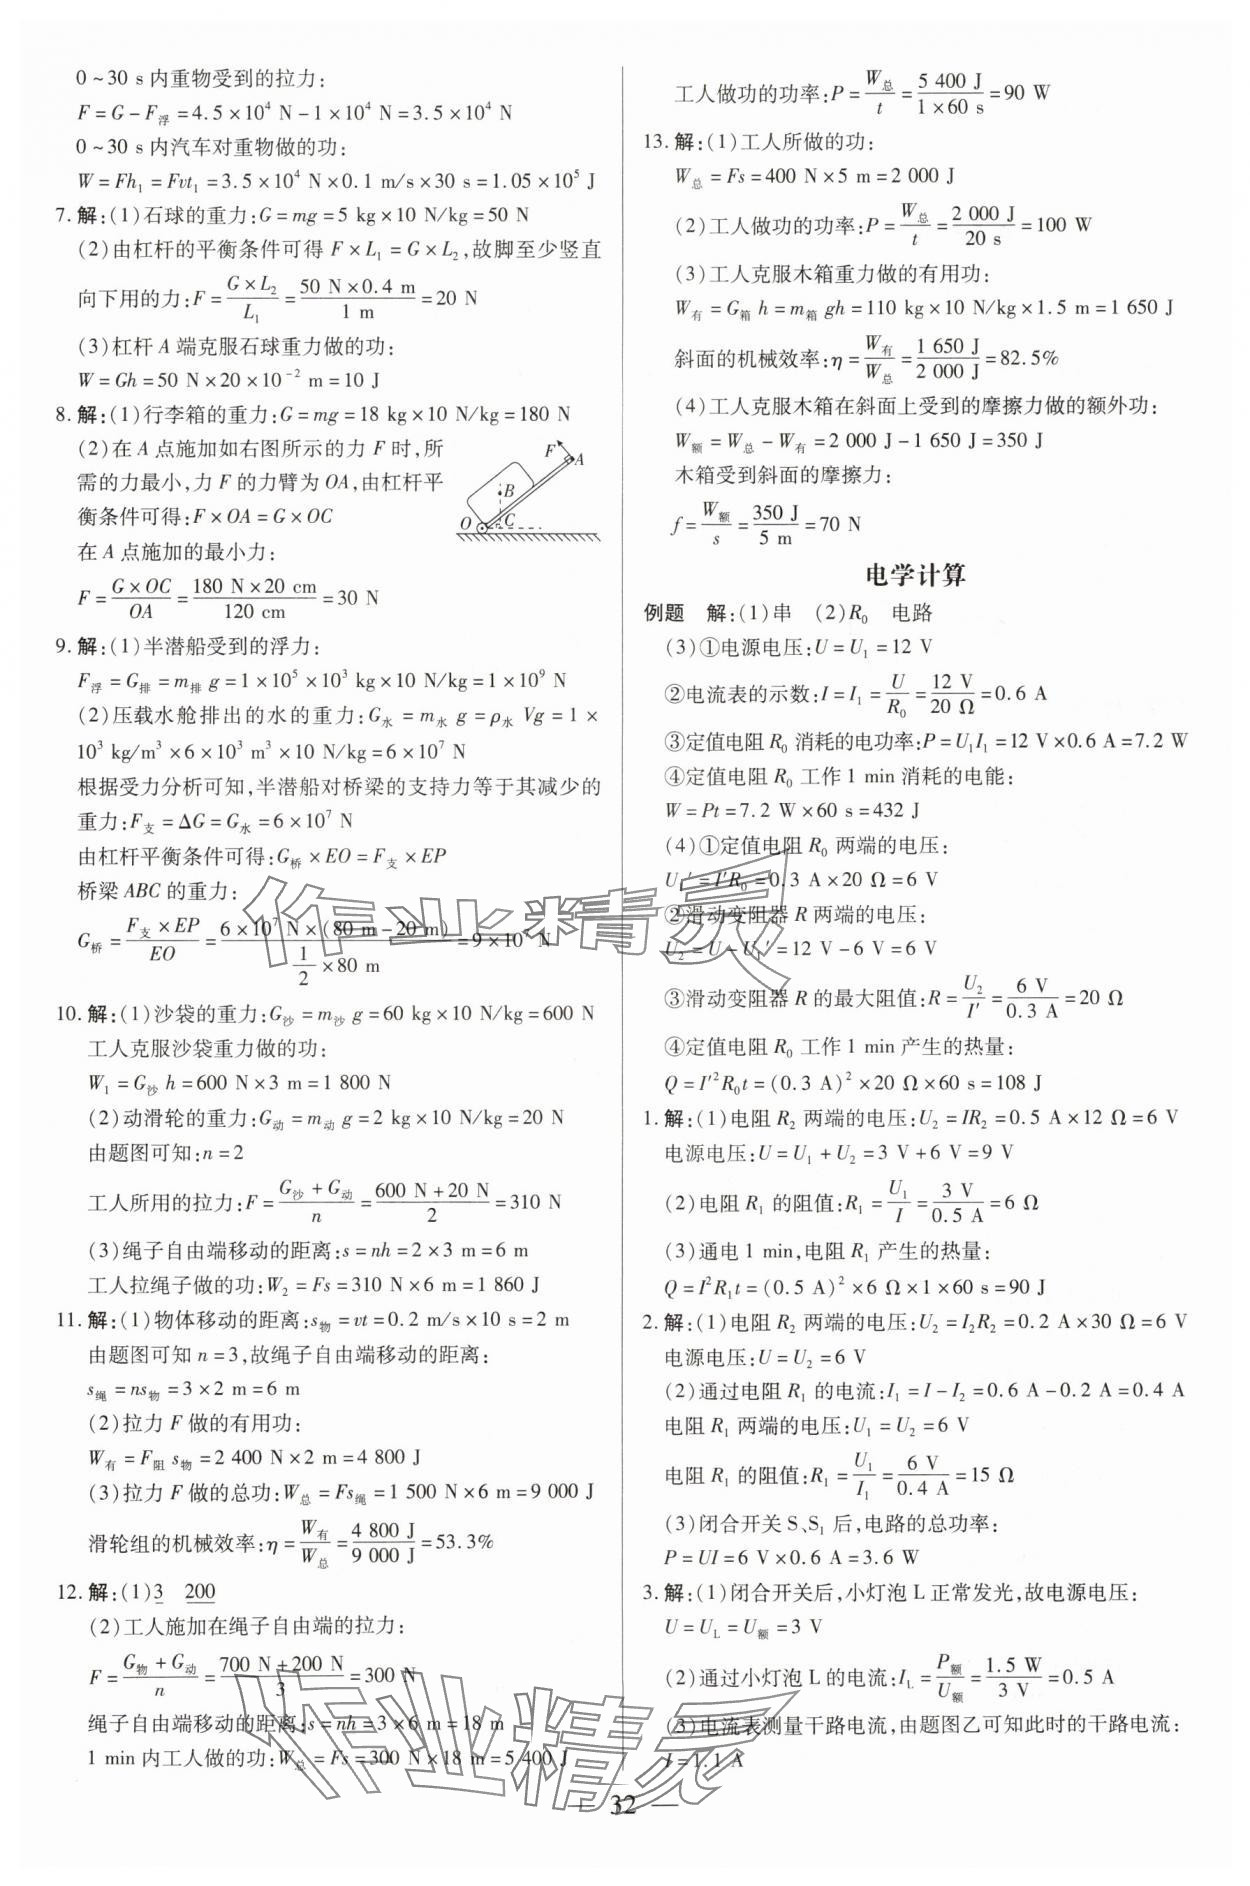 0~30 s内重物受到的拉力:
F=G-F浮=4.5×10⁴ N-1×10⁴ N=3.5×10⁴ N
0~30 s内汽车对重物做的功:
W=Fh₁=Fvt₁=3.5×10⁴ N×0.1 m/s×30 s=1.05×10⁵ J
7.解:(1)石球的重力:G=mg=5 kg×10 N/kg=50 N
(2)由杠杆的平衡条件可得 F×L₁=G×L₂,故脚至少竖直
向下用的力:F=G×L₂/L₁=50 N×0.4 m/1 m=20 N
(3)杠杆 A 端克服石球重力做的功:
W=Gh=50 N×20×10⁻² m=10 J
8.解:(1)行李箱的重力:G=mg=18 kg×10 N/kg=180 N
(2)在 A 点施加如右图所示的力 F 时,所
需的力最小,力 F 的力臂为 OA,由杠杆平
衡条件可得:F×OA=G×OC
在 A 点施加的最小力:
F=G×OC/OA=180 N×20 cm/120 cm=30 N
F A B O C
9.解:(1)半潜船受到的浮力:
F浮=G排=m排 g=1×10⁵×10³ kg×10 N/kg=1×10⁹ N
(2)压载水舱排出的水的重力:G水=m水 g=ρ水 Vg=1×
10³ kg/m³×6×10³ m³×10 N/kg=6×10⁷ N
根据受力分析可知,半潜船对桥梁的支持力等于其减少的
重力:F支=ΔG=G水=6×10⁷ N
由杠杆平衡条件可得:G桥×EO=F支×EP
桥梁 ABC 的重力:
G桥=F支×EP/EO=6×10⁷ N×(80 m-20 m)/(1/2×80 m)=9×10⁷ N
10.解:(1)沙袋的重力:G沙=m沙 g=60 kg×10 N/kg=600 N
工人克服沙袋重力做的功:
W₁=G沙 h=600 N×3 m=1 800 N
(2)动滑轮的重力:G动=m动 g=2 kg×10 N/kg=20 N
由题图可知:n=2
工人所用的拉力:F=(G沙+G动)/n=(600 N+20 N)/2=310 N
(3)绳子自由端移动的距离:s=nh=2×3 m=6 m
工人拉绳子做的功:W₂=Fs=310 N×6 m=1 860 J
11.解:(1)物体移动的距离:s物=vt=0.2 m/s×10 s=2 m
由题图可知 n=3,故绳子自由端移动的距离:
s绳=ns物=3×2 m=6 m
(2)拉力 F 做的有用功:
W有=F阻 s物=2 400 N×2 m=4 800 J
(3)拉力 F 做的总功:W总=Fs绳=1 500 N×6 m=9 000 J
滑轮组的机械效率:η=W有/W总=4 800 J/9 000 J=53.3%
12.解:(1)3 200
(2)工人施加在绳子自由端的拉力:
F=(G物+G动)/n=(700 N+200 N)/3=300 N
绳子自由端移动的距离:s=nh=3×6 m=18 m
1 min内工人做的功:W总=Fs=300 N×18 m=5 400 J
工人做功的功率:P=W总/t=5 400 J/1×60 s=90 W
13.解:(1)工人所做的功:
W总=Fs=400 N×5 m=2 000 J
(2)工人做功的功率:P=W总/t=2 000 J/20 s=100 W
(3)工人克服木箱重力做的有用功:
W有=G箱 h=m箱 gh=110 kg×10 N/kg×1.5 m=1 650 J
斜面的机械效率:η=W有/W总=1 650 J/2 000 J=82.5%
(4)工人克服木箱在斜面上受到的摩擦力做的额外功:
W额=W总-W有=2 000 J-1 650 J=350 J
木箱受到斜面的摩擦力:
f=W额/s=350 J/5 m=70 N
电学计算
例题 解:(1)串 (2)R₀ 电路
(3)①电源电压:U=U₁=12 V
②电流表的示数:I=I₁=U/R₀=12 V/20 Ω=0.6 A
③定值电阻 R₀ 消耗的电功率:P=U₁I₁=12 V×0.6 A=7.2 W
④定值电阻 R₀ 工作 1 min 消耗的电能:
W=Pt=7.2 W×60 s=432 J
(4)①定值电阻 R₀ 两端的电压:
U₁′=I′R₀=0.3 A×20 Ω=6 V
②滑动变阻器 R 两端的电压:
U₂=U-U₁′=12 V-6 V=6 V
③滑动变阻器 R 的最大阻值:R=U₂/I′=6 V/0.3 A=20 Ω
④定值电阻 R₀ 工作 1 min 产生的热量:
Q=I′²R₀t=(0.3 A)²×20 Ω×60 s=108 J
1.解:(1)电阻 R₂ 两端的电压:U₂=IR₂=0.5 A×12 Ω=6 V
电源电压:U=U₁+U₂=3 V+6 V=9 V
(2)电阻 R₁ 的阻值:R₁=U₁/I=3 V/0.5 A=6 Ω
(3)通电 1 min,电阻 R₁ 产生的热量:
Q=I²R₁t=(0.5 A)²×6 Ω×1×60 s=90 J
2.解:(1)电阻 R₂ 两端的电压:U₂=I₂R₂=0.2 A×30 Ω=6 V
电源电压:U=U₂=6 V
(2)通过电阻 R₁ 的电流:I₁=I-I₂=0.6 A-0.2 A=0.4 A
电阻 R₁ 两端的电压:U₁=U₂=6 V
电阻 R₁ 的阻值:R₁=U₁/I₁=6 V/0.4 A=15 Ω
(3)闭合开关 S、S₁ 后,电路的总功率:
P=UI=6 V×0.6 A=3.6 W
3.解:(1)闭合开关后,小灯泡 L 正常发光,故电源电压:
U=U_L=U额=3 V
(2)通过小灯泡 L 的电流:I_L=P额/U额=1.5 W/3 V=0.5 A
(3)电流表测量干路电流,由题图乙可知此时的干路电流:
I=1.1 A
作业精灵
作业精灵
— 32 —